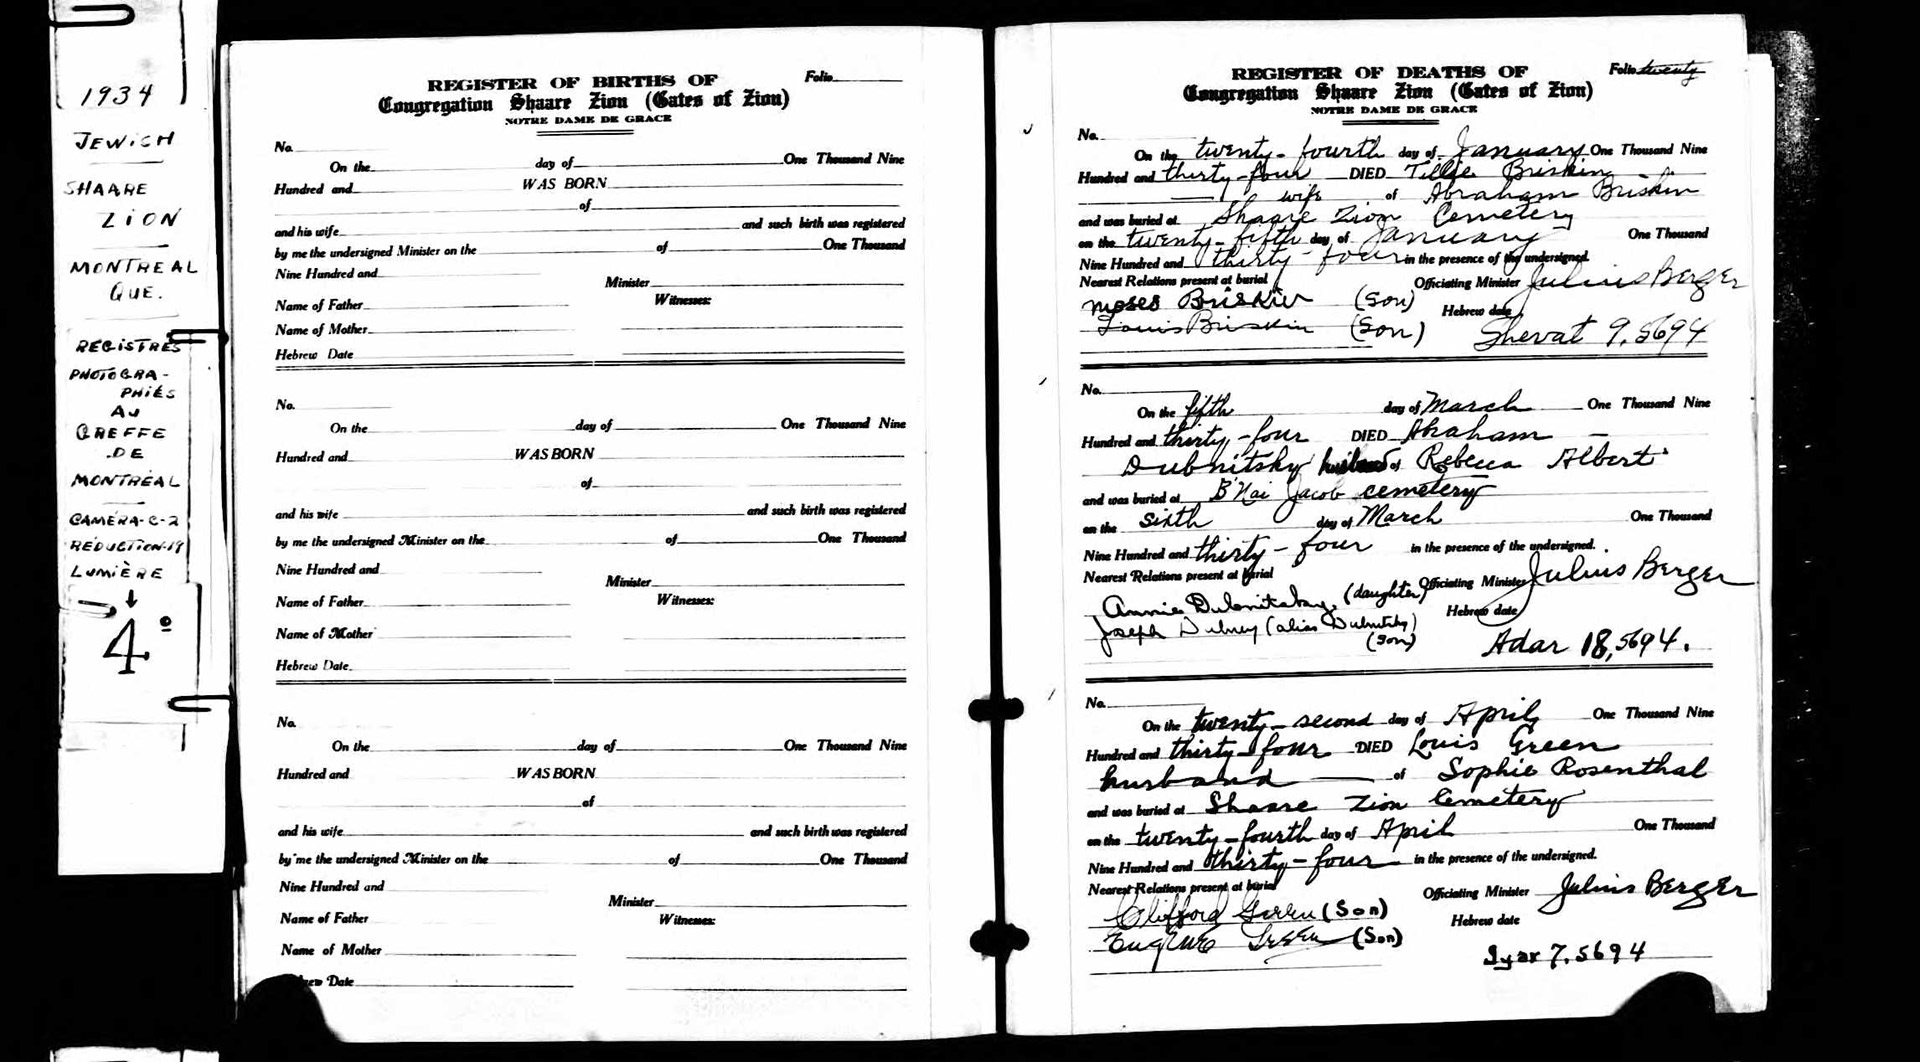 1934
JEWISH
SHAARE
ZION
MONTREAL
QUE.
REGISTRES
PHOTOGRA-
PHIÉS
AU
GREFFE
DE
MONTRÉAL
CAMÉRA-C-2
RÉDUCTION-19
LUMIÈRE
4°
REGISTER OF BIRTHS OF Folio
Congregation Shaare Zion (Gates of Zion)
NOTRE DAME DE GRACE
No.
On the day of One Thousand Nine
Hundred and WAS BORN
of
and his wife and such birth was registered
by me the undersigned Minister on the of One Thousand
Nine Hundred and Minister
Name of Father Witnesses:
Name of Mother
Hebrew Date
No.
On the day of One Thousand Nine
Hundred and WAS BORN
of
and his wife and such birth was registered
by me the undersigned Minister on the of One Thousand
Nine Hundred and Minister
Name of Father Witnesses:
Name of Mother
Hebrew Date
No.
On the day of One Thousand Nine
Hundred and WAS BORN
of
and his wife and such birth was registered
by me the undersigned Minister on the of One Thousand
Nine Hundred and Minister
Name of Father Witnesses:
Name of Mother
Date
REGISTER OF DEATHS OF Folio twenty
Congregation Shaare Zion (Gates of Zion)
NOTRE DAME DE GRACE
No.
On the twenty-fourth day of January One Thousand Nine
Hundred and thirty-four DIED Tillie Briskin
wife of Abraham Briskin
and was buried at Shaare Zion Cemetery
on the twenty-fifth day of January One Thousand
Nine Hundred and thirty-four in the presence of the undersigned.
Nearest Relations present at burial Officiating Minister Julius Berger
Moses Briskin (Son) Hebrew date
Louis Briskin (Son) Shevat 9, 5694
No.
On the fifth day of March One Thousand Nine
Hundred and thirty-four DIED Abraham
Dubnitsky husband of Rebecca Albert
and was buried at B'Nai Jacob cemetery
on the sixth day of March One Thousand
Nine Hundred and thirty-four in the presence of the undersigned.
Nearest Relations present at burial Officiating Minister Julius Berger
Annie Dubnitsky (daughter) Hebrew date
Joseph Dubney (alias Dubnitsky)
(Son) Adar 18, 5694.
No.
On the twenty-second day of April One Thousand Nine
Hundred and thirty-four DIED Louis Green
husband of Sophie Rosenthal
and was buried at Shaare Zion Cemetery
on the twenty-fourth day of April One Thousand
Nine Hundred and thirty-four in the presence of the undersigned.
Nearest Relations present at burial Officiating Minister Julius Berger
Clifford Green (Son) Hebrew date
Eugene Green (Son)
Iyar 7, 5694